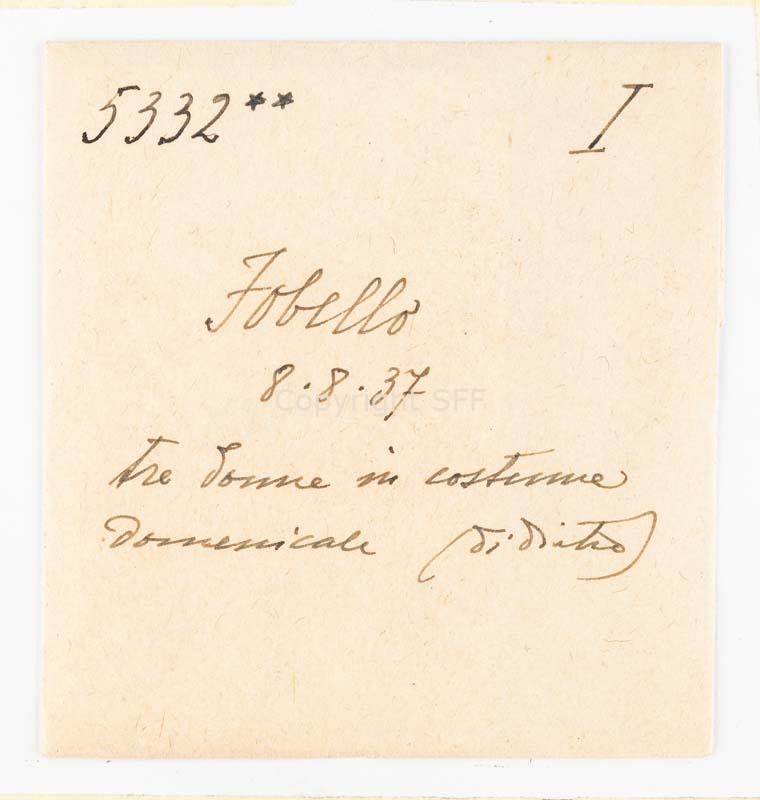 5332** I
Fobello
8.8.37
Copyright SFF
tre donne in costume
domenicale (di dietro)